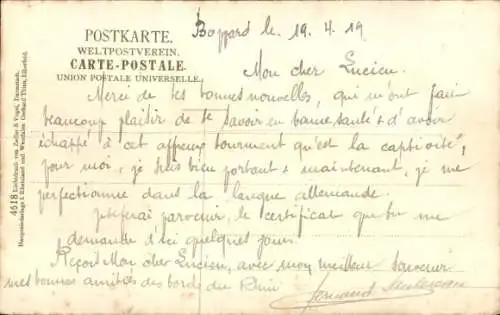 Boppard le 19.4.19
POSTKARTE.
WELTPOSTVEREIN.
CARTE-POSTALE.
UNION POSTALE UNIVERSELLE.
Mon cher Lucien.
Merci de tes bonnes nouvelles, qui m'ont fait
beaucoup plaisir de te savoir en bonne santé & d'avoir
échappé à cet affreux tourment qu'est la captivité,
pour moi, je suis bien portant & maintenant, je me
perfectionne dans la langue allemande.
ferai parvenir, le certificat que tu me
demande d'ici quelques jours.
Reçois Mon cher Lucien, avec mon meilleur souvenir
mes bonnes amitiés des bords du Rhin
Fernand
4618 Lichtdruck von Zedler & Vogel, Darmstadt.
Hauptniederlage f. Rheinland und Westfalen Gerhard Thien, Elberfeld.